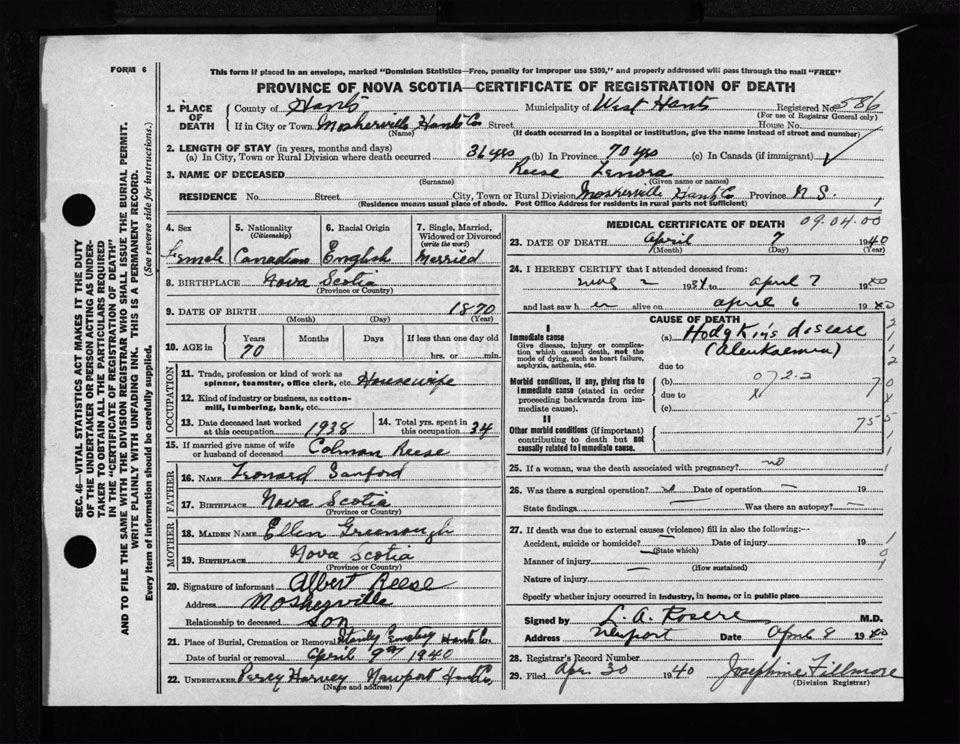 FORM 6
This form if placed in an envelope, marked "Dominion Statistics—Free, penalty for improper use $300," and properly addressed will pass through the mail "FREE"
PROVINCE OF NOVA SCOTIA—CERTIFICATE OF REGISTRATION OF DEATH
SEC. 46—VITAL STATISTICS ACT MAKES IT THE DUTY
OF THE UNDERTAKER OR PERSON ACTING AS UNDER-
TAKER TO OBTAIN ALL THE PARTICULARS REQUIRED
IN THE "CERTIFICATE OF REGISTRATION OF DEATH"
AND TO FILE THE SAME WITH THE DIVISION REGISTRAR WHO SHALL ISSUE THE BURIAL PERMIT.
WRITE PLAINLY WITH UNFADING INK. THIS IS A PERMANENT RECORD.
Every item of information should be carefully supplied. (See reverse side for instructions.)
1. PLACE OF DEATH
County of Hants Municipality of West Hants Registered No. 586
(For use of Registrar General only)
If in City or Town Mosherville Hants Co Street House No.
(Name) (If death occurred in a hospital or institution, give the name instead of street and number)
2. LENGTH OF STAY (in years, months and days)
(a) In City, Town or Rural Division where death occurred 36 yrs (b) In Province 70 yrs (c) In Canada (if immigrant)
3. NAME OF DECEASED Reese Lenora
(Surname) (Given name or names)
RESIDENCE No. Street City, Town or Rural Division Mosherville Hants Co Province N.S.
(Residence means usual place of abode. Post Office Address for residents in rural parts not sufficient)
4. Sex 5. Nationality 6. Racial Origin 7. Single, Married, Widowed or Divorced
(Citizenship) (write the word)
Female Canadian English Married
8. BIRTHPLACE Nova Scotia
(Province or Country)
9. DATE OF BIRTH 1870
(Month) (Day) (Year)
10. AGE in Years Months Days If less than one day old
70 hrs. or min.
OCCUPATION
11. Trade, profession or kind of work as
spinner, teamster, office clerk, etc. Housewife
12. Kind of industry or business, as cotton-
mill, lumbering, bank, etc.
13. Date deceased last worked at this occupation 1938 14. Total yrs. spent in this occupation 34
15. If married give name of wife
or husband of deceased Colman Reese
FATHER
16. NAME Leonard Sanford
17. BIRTHPLACE Nova Scotia
(Province or Country)
MOTHER
18. MAIDEN NAME Ellen Greenough
19. BIRTHPLACE Nova Scotia
(Province or Country)
20. Signature of informant Albert Reese
Address Mosherville
Relationship to deceased Son
21. Place of Burial, Cremation or Removal Cemetery Hants Co.
Date of burial or removal April 9th 1940
22. UNDERTAKER Percy Harvey Newport Hants Co,
(Name and address)
MEDICAL CERTIFICATE OF DEATH 09.04.00
23. DATE OF DEATH April 7 1940
(Month) (Day) (Year)
24. I HEREBY CERTIFY that I attended deceased from:
2 19 to April 7 1940
and last saw her alive on April 6 1940
CAUSE OF DEATH
I
Immediate cause (a) Hodgkin's disease
Give disease, injury or complica-
tion which caused death, not the
mode of dying, such as heart failure,
asphyxia, asthenia, etc.
(Aleukaemia)
due to
Morbid conditions, if any, giving rise to
immediate cause (stated in order
proceeding backwards from im-
mediate cause).
(b)
due to
(c)
II
Other morbid conditions (if important)
contributing to death but not
causally related to immediate cause.
755
25. If a woman, was the death associated with pregnancy? no
26. Was there a surgical operation? no Date of operation — 19
State findings — Was there an autopsy? —
27. If death was due to external causes (violence) fill in also the following:—
Accident, suicide or homicide? Date of injury 19
(State which)
Manner of injury —
(How sustained)
Nature of injury —
Specify whether injury occurred in industry, in home, or in public place
Signed by M.D.
Address Newport Date April 8 1940
28. Registrar's Record Number
29. Filed Apr. 30 1940 Josephine Fillmore
(Division Registrar)